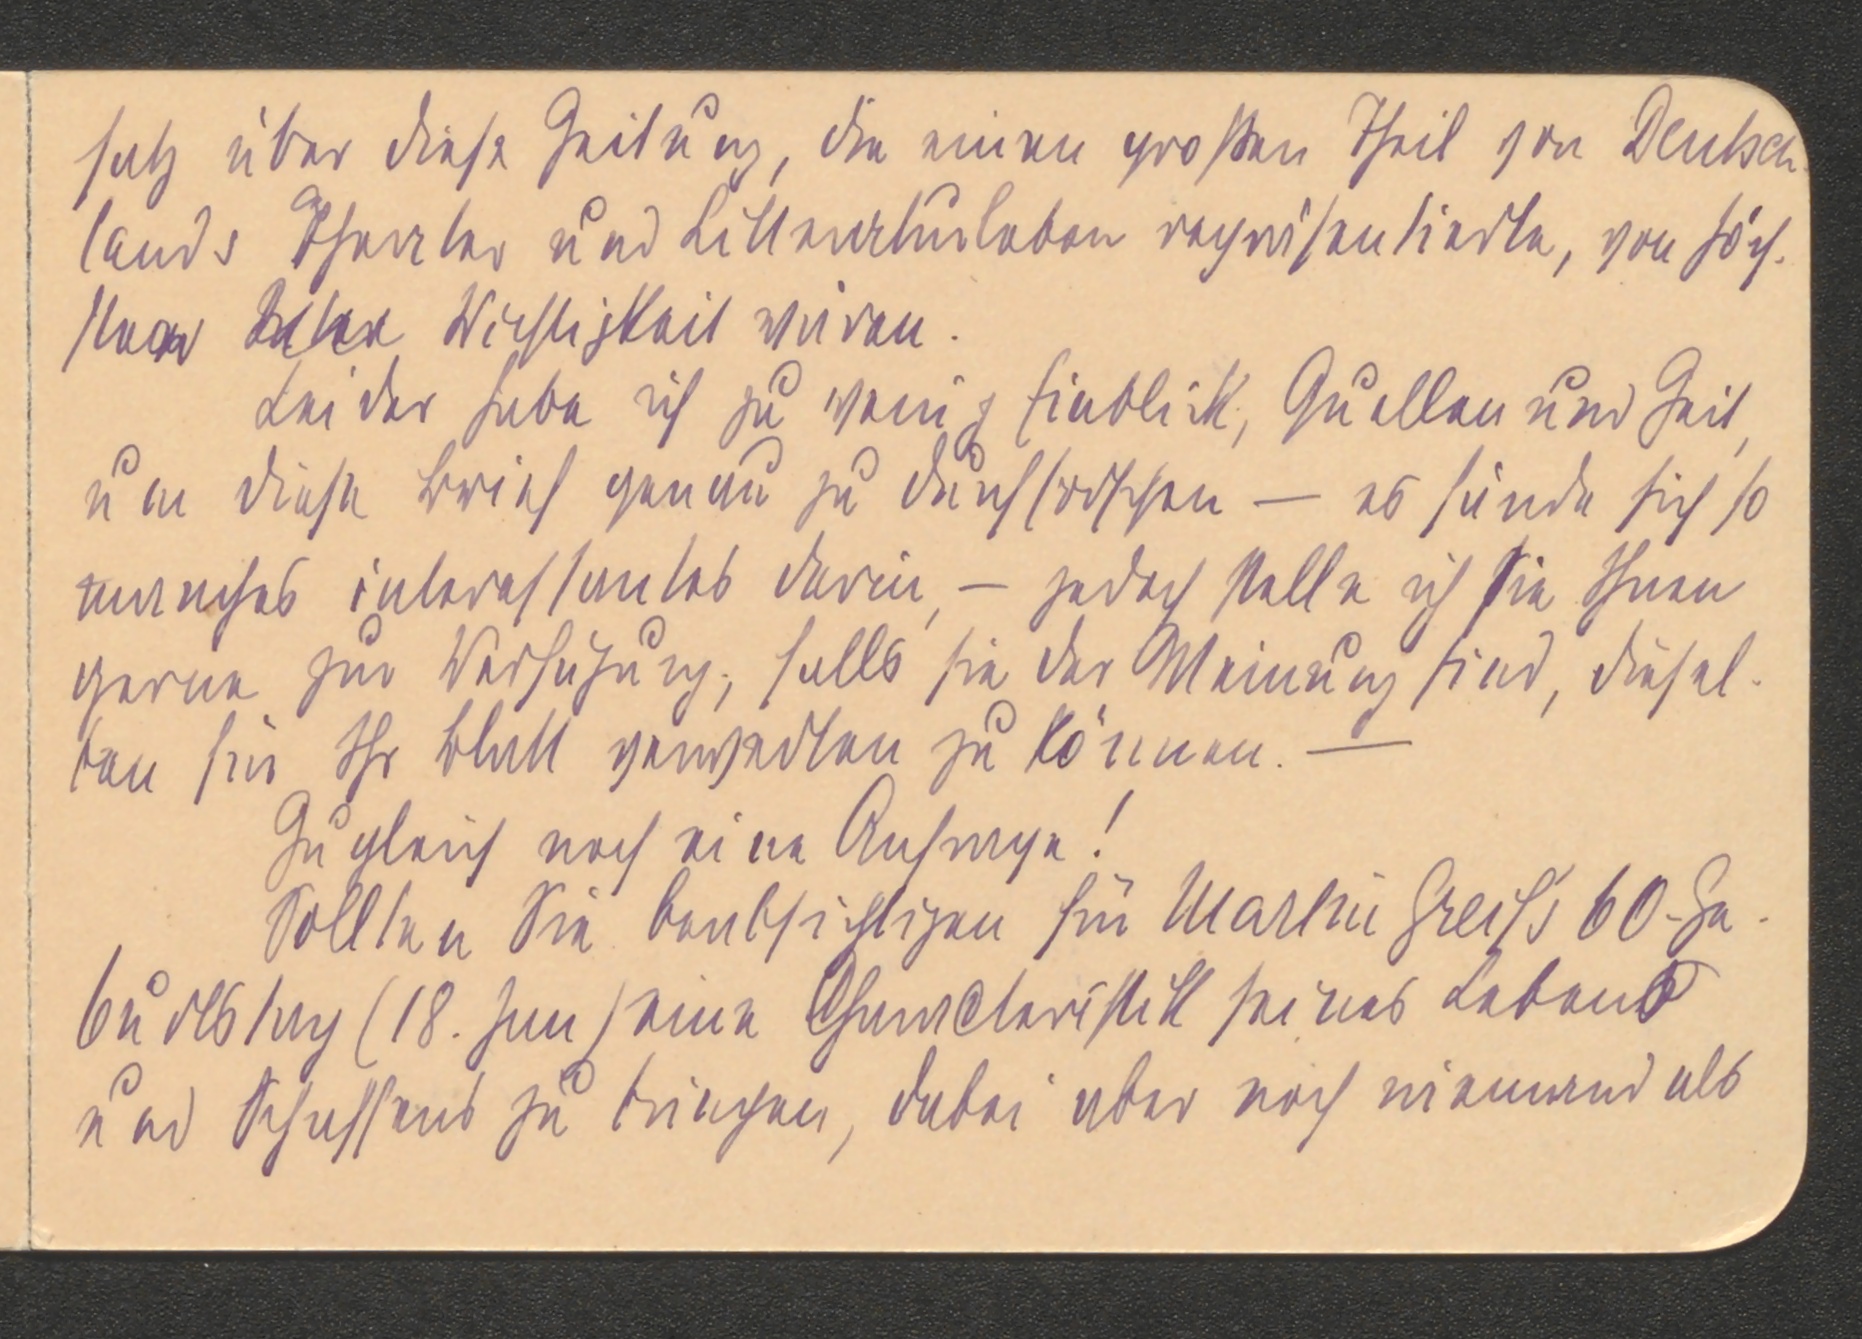 satz über diese Zeitung, die einen großen Theil von Deutsch-
lands Theater und Litteraturleben repräsentierte, von höch-
ster Wichtigkeit wären.
Leider habe ich zu wenig Einblick, Quellen und Zeit,
um diese Brief genau zu durchforschen — es fände sich so
manches interessantes darin, — jedoch stelle ich Sie Ihnen
gerne zur Verfügung, falls sie der Meinung sind, diesel-
ben für Ihr Blatt verwerten zu können. —
Zugleich noch eine Anfrage!
Sollten Sie beabsichtigen für Martin Greif's 60-Ge-
burtstag (18. Jun) eine Characteristik seines Lebens
und Schaffens zu bringen, dabei aber noch niemand als